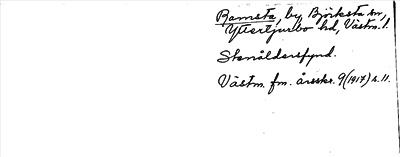 Ramsta, by, Björksta sn,
Yttertjurbo hd, Västm. l.
Stenåldersfynd.
Västm. fm. årsskr. 9 (1917) s. 11.